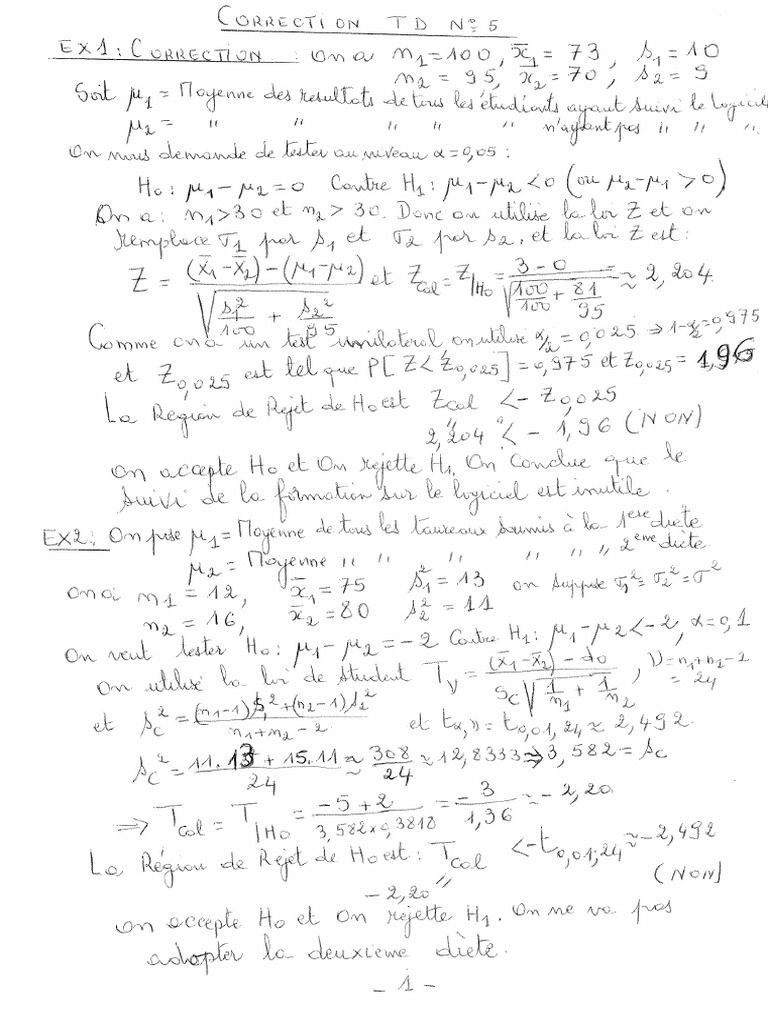 CORRECTION TD N° 5
EX1: CORRECTION : on a n1 = 100, x̄1 = 73, s1 = 10
n2 = 95, x̄2 = 70, s2 = 9
Soit μ1 = Moyenne des resultats de tous les étudiants ayant suivi le logiciel
μ2 = " " " " " n'ayant pas " " "
On nous demande de tester au niveau α = 0,05 :
H0 : μ1 - μ2 = 0 Contre H1 : μ1 - μ2 < 0 (ou μ2 - μ1 > 0)
On a : n1 > 30 et n2 > 30. Donc on utilise la loi Z et on
remplace σ1 par s1 et σ2 par s2, et la loi Z est :
Z = ((x̄1 - x̄2) - (μ1 - μ2)) / √(s1²/100 + s2²/95) et Zcal = Z/H0 = (3 - 0) / √(100/100 + 81/95) ≈ 2,204.
Comme on a un test unilateral on utilise α/2 = 0,025. ⇒ 1-α/2 = 0,975
et Z0,025 est tel que P[Z < Z0,025] = 0,975 et Z0,025 = 1,96
La Région de Rejet de H0 est Zcal < - Z0,025
2,204 < - 1,96 (NON)
on accepte H0 et On rejette H1. On Conclue que le
suivi de la formation sur le logiciel est inutile.
EX2: On pose μ1 = Moyenne de tous les taureaux soumis à la 1ere diete
μ2 = Moyenne " " " " " " 2eme diète
on a n1 = 12, x̄1 = 75 s1² = 13 on suppose σ1² = σ2² = σ²
n2 = 16, x̄2 = 80 s2² = 11
On veut tester H0 : μ1 - μ2 = -2 Contre H1 : μ1 - μ2 < -2, α = 0,1
On utilise la loi de student Tν = ((x̄1 - x̄2) - d0) / (Sc √(1/n1 + 1/n2)), ν = n1 + n2 - 2 = 24
et sc² = ((n1-1)s1² + (n2-1)s2²) / (n1 + n2 - 2) et tα,ν = t0,01,24 ≈ 2,492.
sc² = (11.13 + 15.11) / 24 ≈ 308/24 ≈ 12,8333 ⇒ 3,582 = sc
⇒ Tcal = T/H0 = (-5 + 2) / (3,582 x 0,3818) = -3 / 1,36 ≈ - 2,20
La Région de Rejet de H0 est : Tcal < -t0,01;24 ≈ - 2,492
- 2,20 (NON)
on accepte H0 et On rejette H1. On ne va pas
adopter la deuxieme diète.
- 1 -